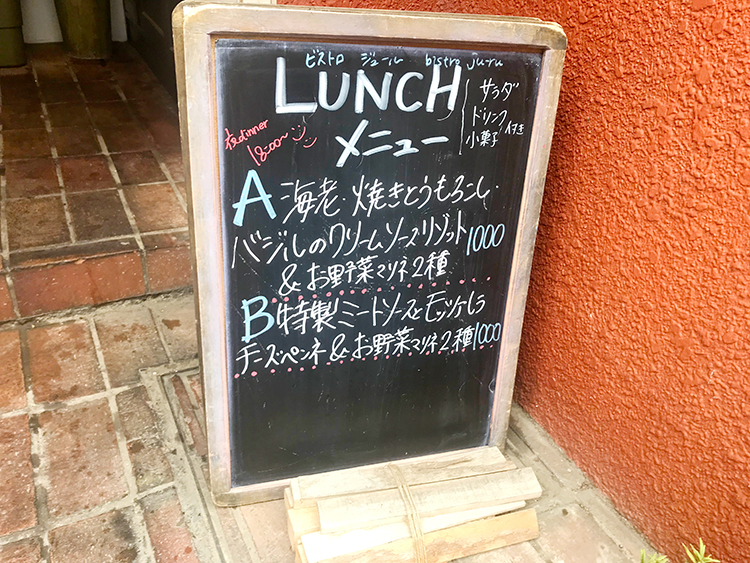 ビストロ ジュール bistro juru
LUNCH
メニュー
サラダ
ドリンク
小菓子 付き
夜dinner
18:00~
A 海老・焼きとうもろこし・
バジルのクリームソースリゾット 1000
&お野菜マリネ2種
B 特製ミートソースとモッツァレラ
チーズペンネ&お野菜マリネ2種 1000